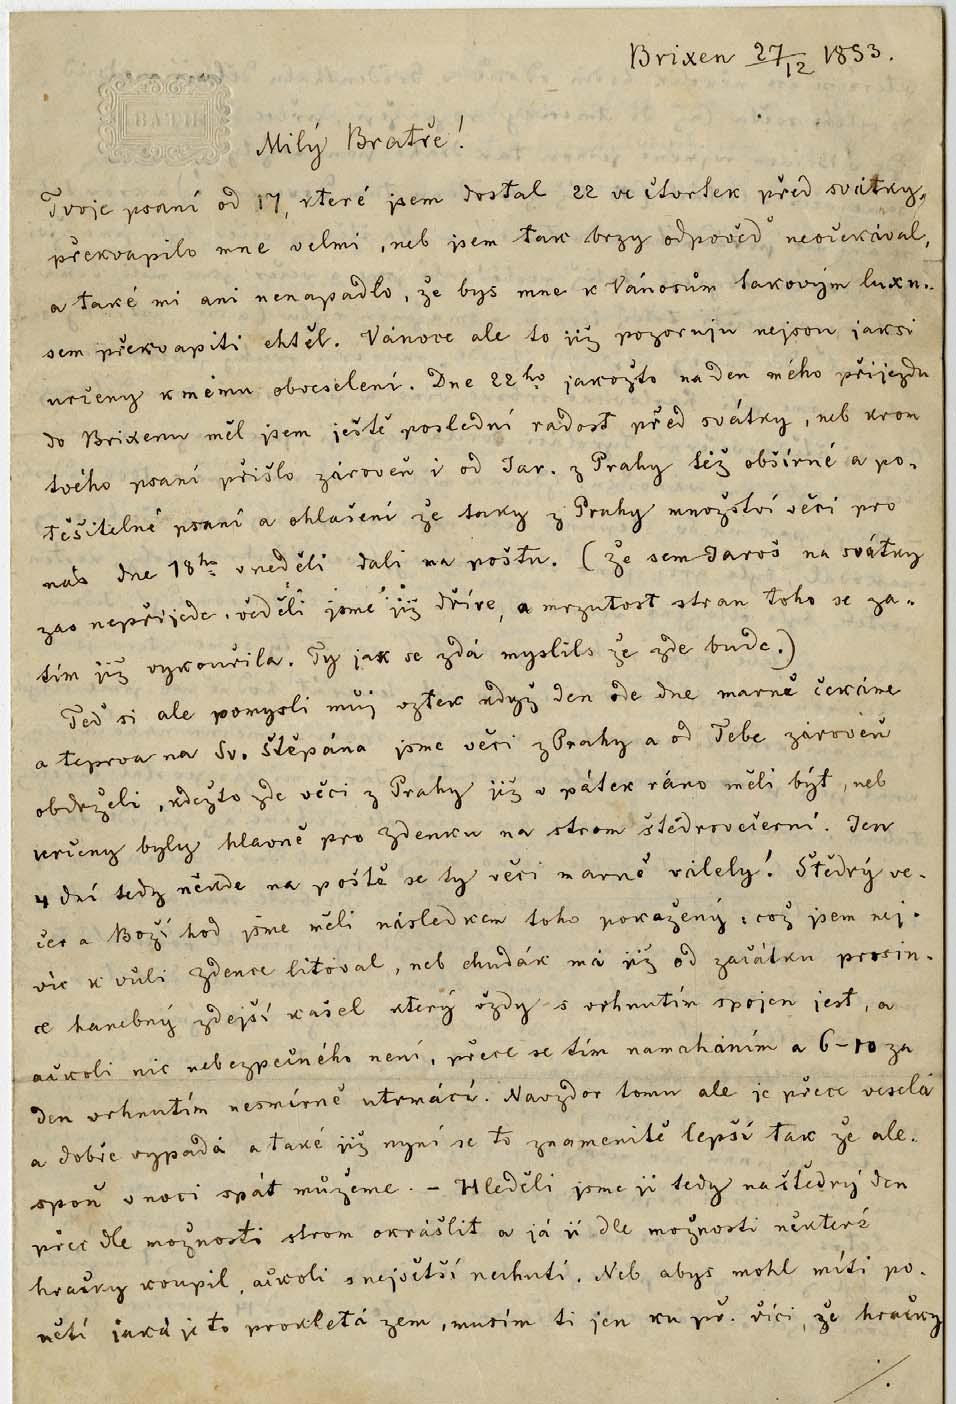 Brixen 27/12 1853.
BATH
Milý Bratře!
Tvoje psaní od 17, které jsem dostal 22 ve čtvrtek před svátky,
překvapilo mne velmi, neb jsem tak brzy odpověď neočekával,
a také mi ani nenapadlo, že bys mne k Vánocům takovým luxu-
sem překvapiti chtěl. Vánoce ale to již pozoruju nejsou jaksi
určeny k mému obveselení. Dne 22ho jakožto na den mého příjezdu
do Brixenu měl jsem ještě poslední radost před svátky, neb krom
tvého psaní přišlo zároveň i od Jar. z Prahy též obšírné a po-
těšitelné psaní a ohlašení že taky z Prahy množství věcí pro
nás dne 18ho v neděli dali na poštu. (Že sem Jaroš na svátky
zas nepřijede, věděli jsme již dříve, a mrzutost stran toho se za-
tím již vykouřila. Ty jak se zdá myslils že zde bude.)
Teď si ale pomysli můj vztek když den ode dne marně čekáme
a teprva na Sv. Štěpána jsme věci z Prahy a od Tebe zároveň
obdrželi, kdežto zde věci z Prahy již v pátek ráno měli být, neb
určeny byly hlavně pro Zdenku na strom štědrovečerní. Jen
4 dní tedy někde na poště se ty věci marně válely! Štědrý ve-
čer a Boží hod jsme měli následkem toho pokažený, což jsem nej-
víc k vůli Zdence litoval, neb chudák má již od začátku prosin-
ce hanebný zdejší kašel který vždy s vrhnutím spojen jest, a
ačkoli nic nebezpečného není, přece se tím namáháním a 6-10 za
den vrhnutím nesmírně utrmácí. Navzdor tomu ale je přece veselá
a dobře vypadá a také již nyní se to znamenitě lepší tak že ale-
spoň v noci spát můžeme. - Hleděli jsme jí tedy na štědrý den
přec dle možnosti strom okrášlit a já jí dle možnosti některé
hračky koupil, ačkoli s největší nechutí. Neb abys mohl míti po-
nětí jaká je to prokletá zem, musím ti jen ku př. říci, že hračky
./.